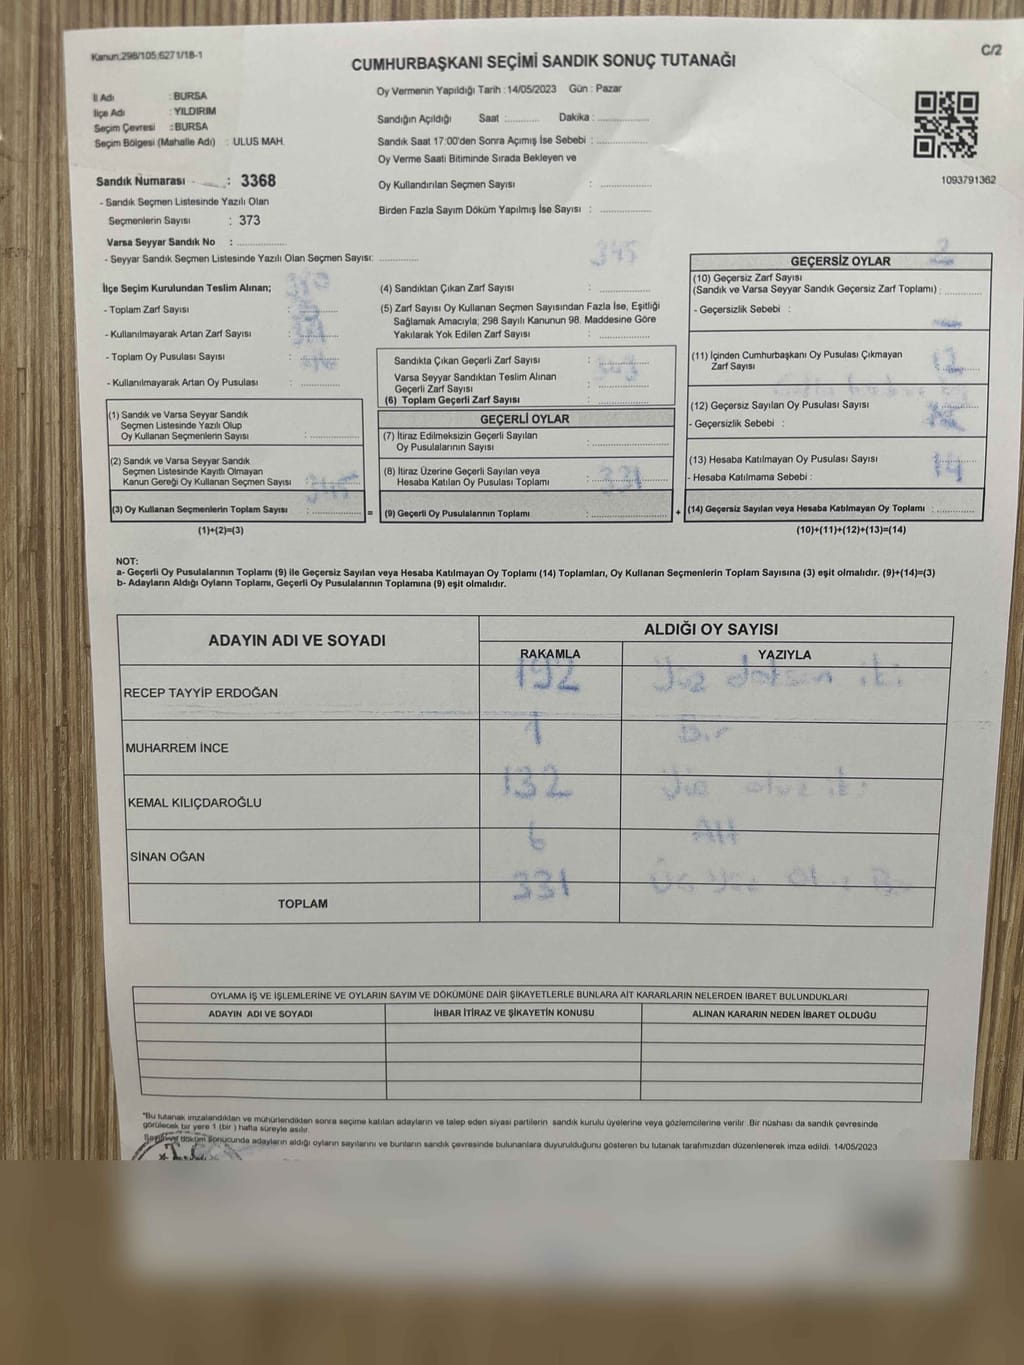 Kanun;298/105;6271/18-1
C/2
CUMHURBAŞKANI SEÇİMİ SANDIK SONUÇ TUTANAĞI
Oy Vermenin Yapıldığı Tarih : 14/05/2023 Gün : Pazar
İl Adı : BURSA
İlçe Adı : YILDIRIM
Seçim Çevresi : BURSA
Seçim Bölgesi (Mahalle Adı) : ULUS MAH.
Sandığın Açıldığı Saat :............ Dakika : ..................
Sandık Saat 17:00'den Sonra Açımış İse Sebebi : ..................
Oy Verme Saati Bitiminde Sırada Bekleyen ve
Oy Kullandırılan Seçmen Sayısı : ..................
Birden Fazla Sayım Döküm Yapılmış İse Sayısı : ..................
1093791362
Sandık Numarası : 3368
- Sandık Seçmen Listesinde Yazılı Olan
Seçmenlerin Sayısı : 373
Varsa Seyyar Sandık No : ..................
- Seyyar Sandık Seçmen Listesinde Yazılı Olan Seçmen Sayısı: ..............
İlçe Seçim Kurulundan Teslim Alınan;
- Toplam Zarf Sayısı :
- Kullanılmayarak Artan Zarf Sayısı :
- Toplam Oy Pusulası Sayısı :
- Kullanılmayarak Artan Oy Pusulası :
(1) Sandık ve Varsa Seyyar Sandık
Seçmen Listesinde Yazılı Olup
Oy Kullanan Seçmenlerin Sayısı :
(2) Sandık ve Varsa Seyyar Sandık
Seçmen Listesinde Kayıtlı Olmayan
Kanun Gereği Oy Kullanan Seçmen Sayısı :
345
(3) Oy Kullanan Seçmenlerin Toplam Sayısı : =
(1)+(2)=(3)
345
(4) Sandıktan Çıkan Zarf Sayısı :
(5) Zarf Sayısı Oy Kullanan Seçmen Sayısından Fazla İse, Eşitliği
Sağlamak Amacıyla; 298 Sayılı Kanunun 98. Maddesine Göre
Yakılarak Yok Edilen Zarf Sayısı :
Sandıkta Çıkan Geçerli Zarf Sayısı :
343
Varsa Seyyar Sandıktan Teslim Alınan
Geçerli Zarf Sayısı :
(6) Toplam Geçerli Zarf Sayısı :
GEÇERLİ OYLAR
(7) İtiraz Edilmeksizin Geçerli Sayılan
Oy Pusulalarının Sayısı :
(8) İtiraz Üzerine Geçerli Sayılan veya
Hesaba Katılan Oy Pusulası Toplamı :
331
(9) Geçerli Oy Pusulalarının Toplamı : +
2
GEÇERSİZ OYLAR
(10) Geçersiz Zarf Sayısı
(Sandık ve Varsa Seyyar Sandık Geçersiz Zarf Toplamı) :
- Geçersizlik Sebebi :
(11) İçinden Cumhurbaşkanı Oy Pusulası Çıkmayan
Zarf Sayısı :
12
(12) Geçersiz Sayılan Oy Pusulası Sayısı :
- Geçersizlik Sebebi :
(13) Hesaba Katılmayan Oy Pusulası Sayısı :
- Hesaba Katılmama Sebebi :
14
(14) Geçersiz Sayılan veya Hesaba Katılmayan Oy Toplamı :
(10)+(11)+(12)+(13)=(14)
NOT:
a- Geçerli Oy Pusulalarının Toplamı (9) ile Geçersiz Sayılan veya Hesaba Katılmayan Oy Toplamı (14) Toplamları, Oy Kullanan Seçmenlerin Toplam Sayısına (3) eşit olmalıdır. (9)+(14)=(3)
b- Adayların Aldığı Oyların Toplamı, Geçerli Oy Pusulalarının Toplamına (9) eşit olmalıdır.
ADAYIN ADI VE SOYADI
ALDIĞI OY SAYISI
RAKAMLA YAZIYLA
RECEP TAYYİP ERDOĞAN 192 Yüz doksan iki
MUHARREM İNCE 1 Bir
KEMAL KILIÇDAROĞLU 132 Yüz otuz iki
SİNAN OĞAN 6 Altı
TOPLAM 331 Üç yüz
OYLAMA İŞ VE İŞLEMLERİNE VE OYLARIN SAYIM VE DÖKÜMÜNE DAİR ŞİKAYETLERLE BUNLARA AİT KARARLARIN NELERDEN İBARET BULUNDUKLARI
ADAYIN ADI VE SOYADI İHBAR İTİRAZ VE ŞİKAYETİN KONUSU ALINAN KARARIN NEDEN İBARET OLDUĞU
*Bu tutanak imzalandıktan ve mühürlendikten sonra seçime katılan adayların ve talep eden siyasi partilerin sandık kurulu üyelerine veya gözlemcilerine verilir .Bir nüshası da sandık çevresinde
görülecek bir yere 1 (bir ) hafta süreyle asılır.
Sayım ve döküm sonucunda adayların aldığı oyların sayılarını ve bunların sandık çevresinde bulunanlara duyurulduğunu gösteren bu tutanak tarafımızdan düzenlenerek imza edildi. 14/05/2023
T.C.